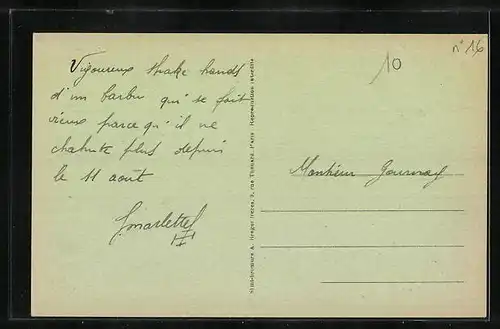 Vigoureux shake hands
d'un barbu qui se fait
vieux parce qu'il ne
chahute plus depuis
le 11 août
10
n° 16
Monsieur Gournay
3, rue Thénard, Paris Reproduction interdite